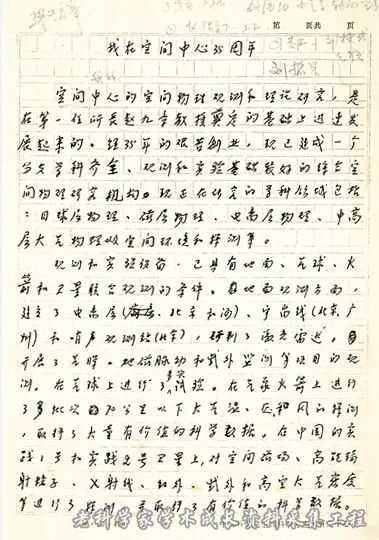 第 页共 页
我在空间中心35周年
刘振兴
空间中心的空间物理观测和理论研究，是
在第一任所长赵九章教授奠定的基础上迅速发
展起来的。经35年的艰苦创业，现已建成一个
学科齐全、观测和实验基础较好的综合空
间物理研究机构。现正在研究的学科领域包括
：日球层物理、磁层物理、电离层物理、中高
层大气物理以及空间环境和探测等。
观测和实验设备，已具有地面、气球、火
箭和卫星联合观测的条件。在地面观测方面，
建立了电离层(海南、北京和)、宇宙线(北京、广
州)和哨声观测站(北京)，研制了激光雷达，
开展了气辉、地磁脉动和紫外监测等项目的观
测。在气球上进行了多次试验。在气象火箭上进行
了多批次公里以下大气温、压和风的探测
，取得了大量有价值的科学数据。在中国的实
践1号和实践2号卫星上，对空间磁场、高能辐
射粒子、X射线、红外、紫外和高空大气密度
等进行了探测，并取得了有价值的科学数据。
老科学家学术成长资料采集工程